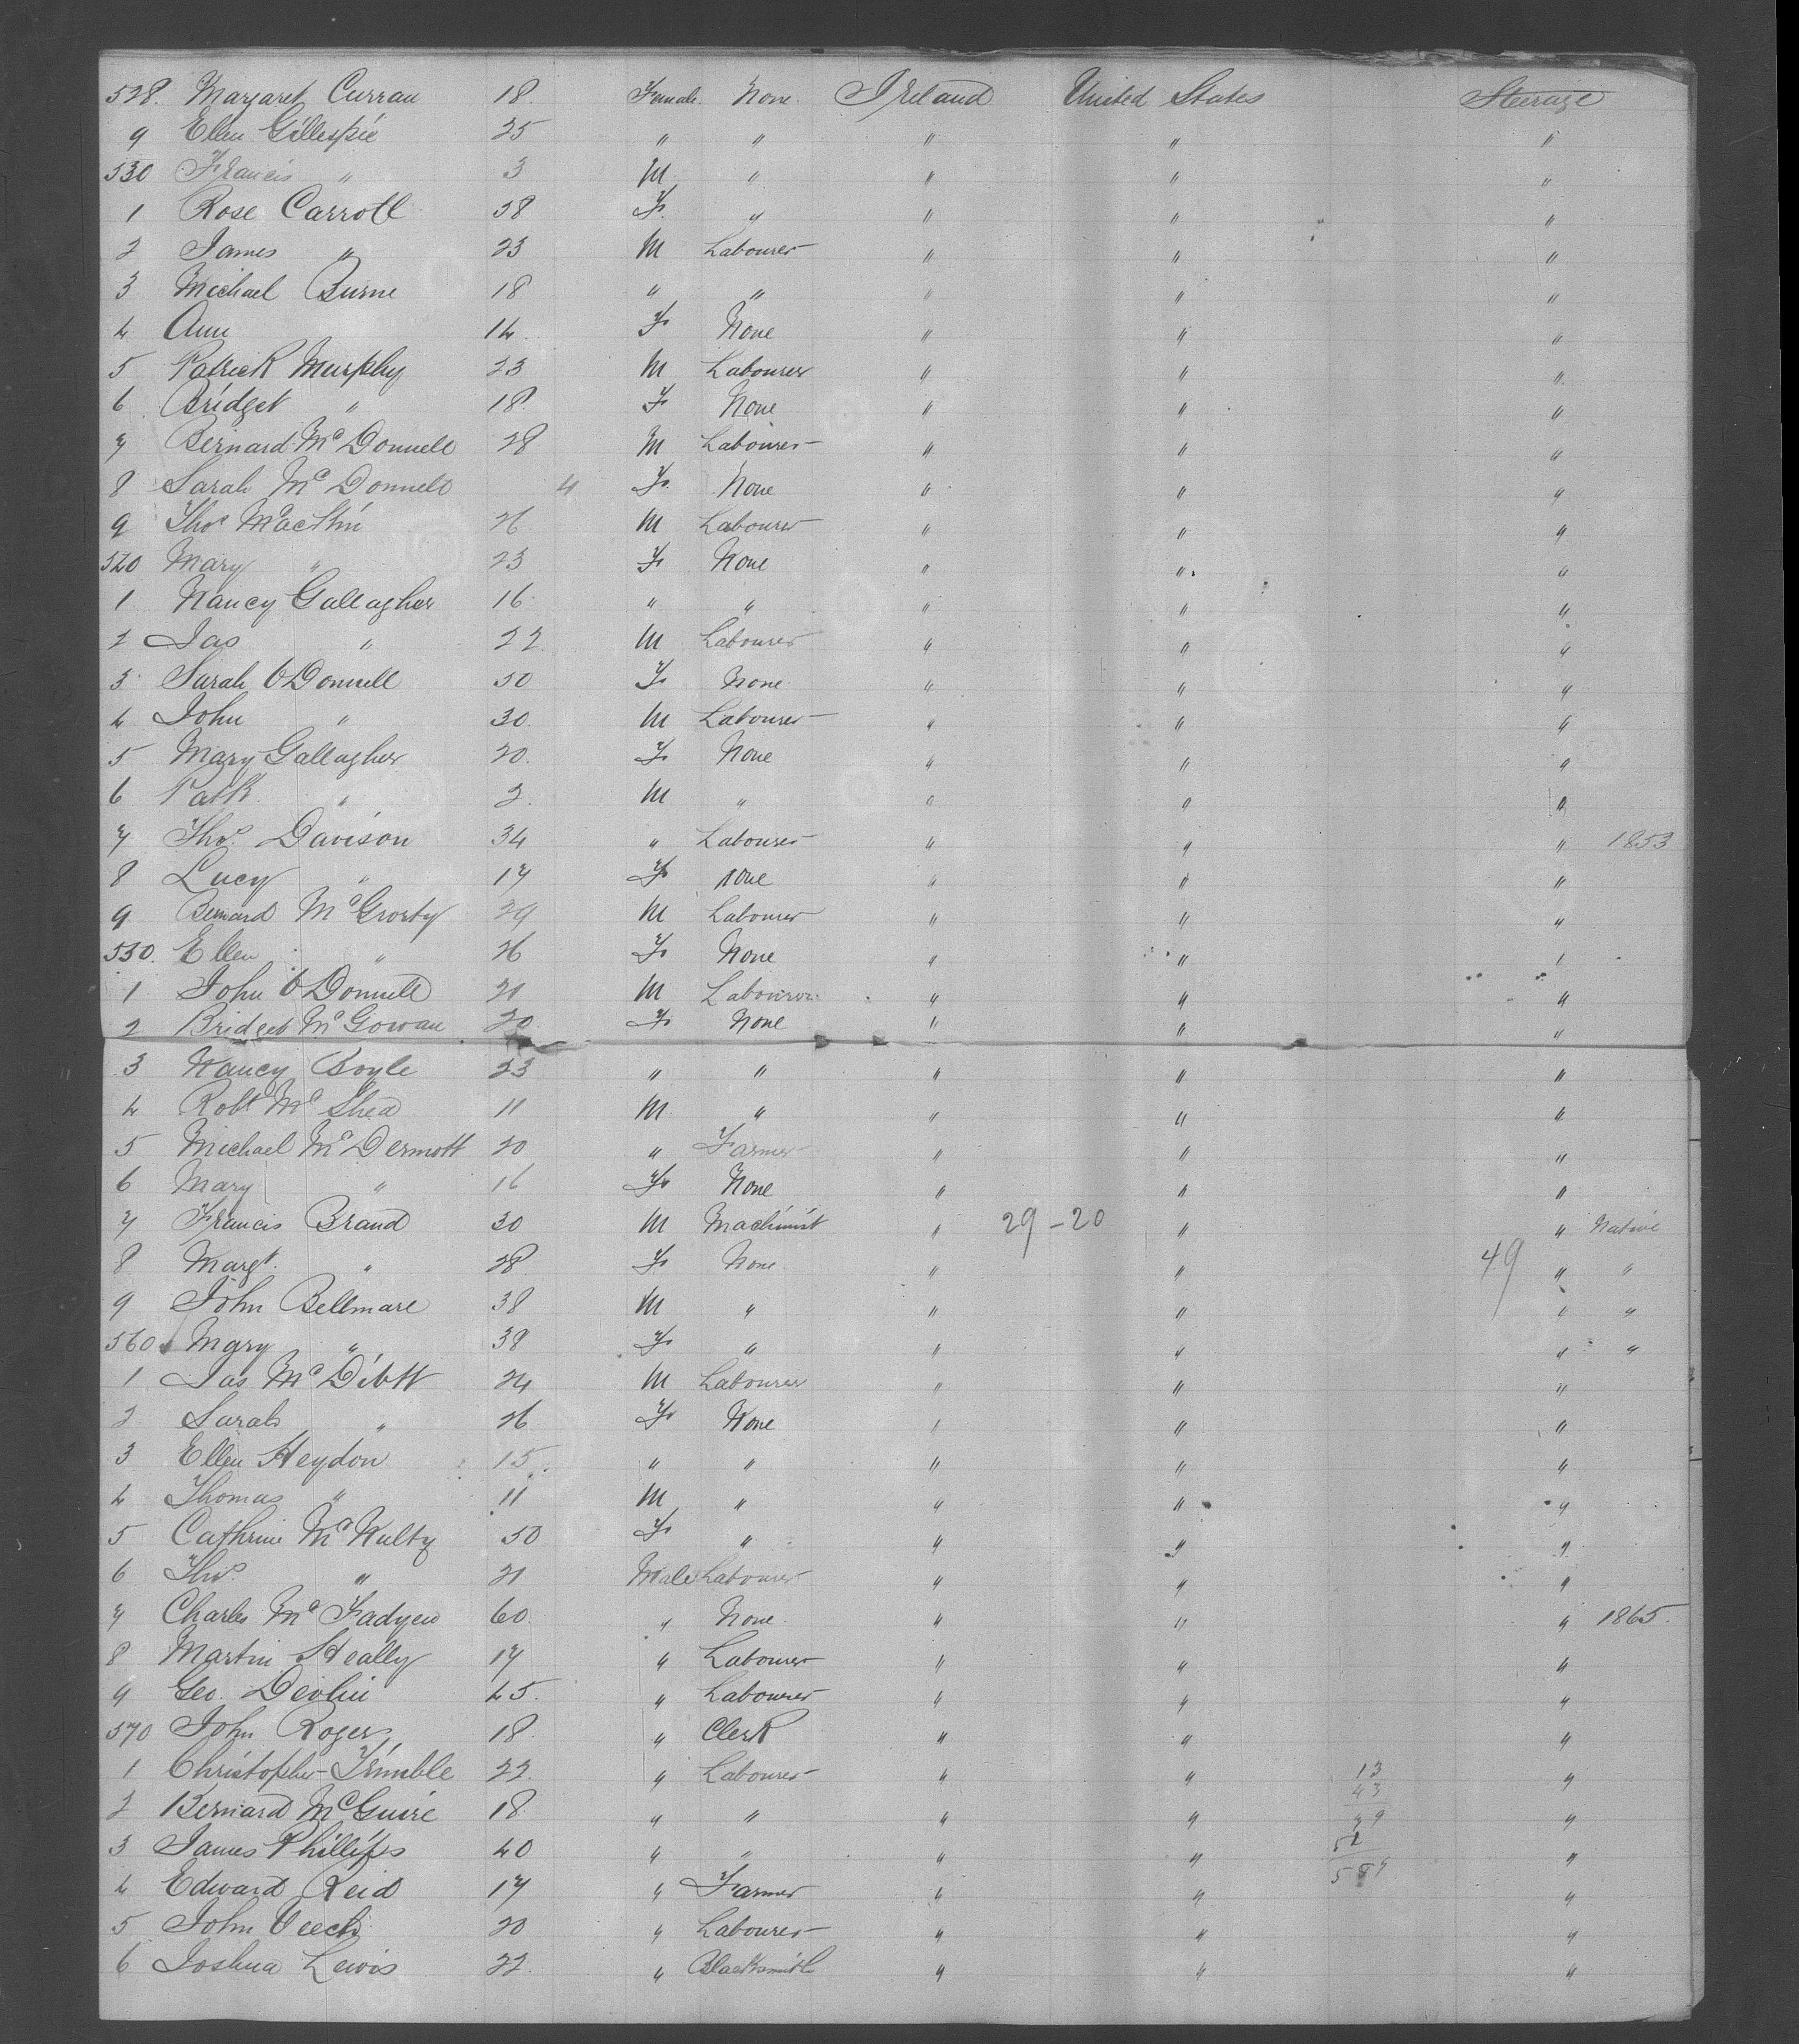 528. Margaret Curran 18. Female. None. Ireland United States Steerage
9 Ellen Gillespie 25 " " " " "
530 Francis " 3 M " " " "
1 Rose Carroll 58 F. " " " "
2 James " 23 M Labourer " " "
3 Michael Burne 18 " " " " "
4 Ann 14. F None " " "
5 Patrick Murphy 23 M Labourer " " "
6 Bridget " 18. F None " " "
7 Bernard Mc Donnell 28 M Labourer " " "
8 Sarah Mc Donnell 4 F. None " " "
9 Thos 26 M Labourer " " "
540 Mary " 23 F None " " "
1 Nancy Gallagher 16. " " " " "
2 Jas " 22. M Labourer " " "
3 Sarah O'Donnell 50 F None. " " "
4 John " 30. M Labourer " " "
5 Mary Gallagher 20. F None " " "
6 Patk " 2. M " " " "
7 Thos. Davison 34 " Labourer " " " 1853
8 Lucy " 17 F None " " "
9 Bernard Mc Grorty 29 M Labourer " " "
550. Ellen " 26 F None " " "
1 John O'Donnell 21 M Labourer " " "
2 Bridget Mc Gowan 20. F None " " "
3 Nancy Boyle 23 " " " " "
4 Robt Mc Shea 11 M " " " "
5 Michael Mc Dermott 20 " Farmer " " "
6 Mary " 16 F None " " "
7 Francis Brand 30 M Machinist " 29 - 20 " " Native
8 Margt. " 28. F None. " " 49 " "
9 John Bellmare 38 M " " " " "
560 Mary " 38 F " " " " "
1 Jas Mc Dibtt 24 M Labourer " " "
2. Sarah " 26 F None " " "
3 Ellen Heydon 15. " " " " "
4 Thomas " 11 M " " " "
5 Cathrine Mc Nulty 50 F " " " "
6 Thos. " 21 Male Labourer " " "
7 Charles Mc Fadyen 60. " None. " " " 1865.
8 Martin Heally 17 " Labourer " " "
9 Geo. Devlin 45. " Labourer " " "
570 John Rogers 18. " Clerk " " "
1 Christopher Trimble 22. " Labourer " " 13 "
2 Bernard McGuire 18. " " " " 43 "
3 James Phillips 40 " " " " "
4 Edward Reid 17 " Farmer " " "
5 John Veech 20 " Labourer " " "
6 Joshua Lewis 22. " Blacksmith " " "